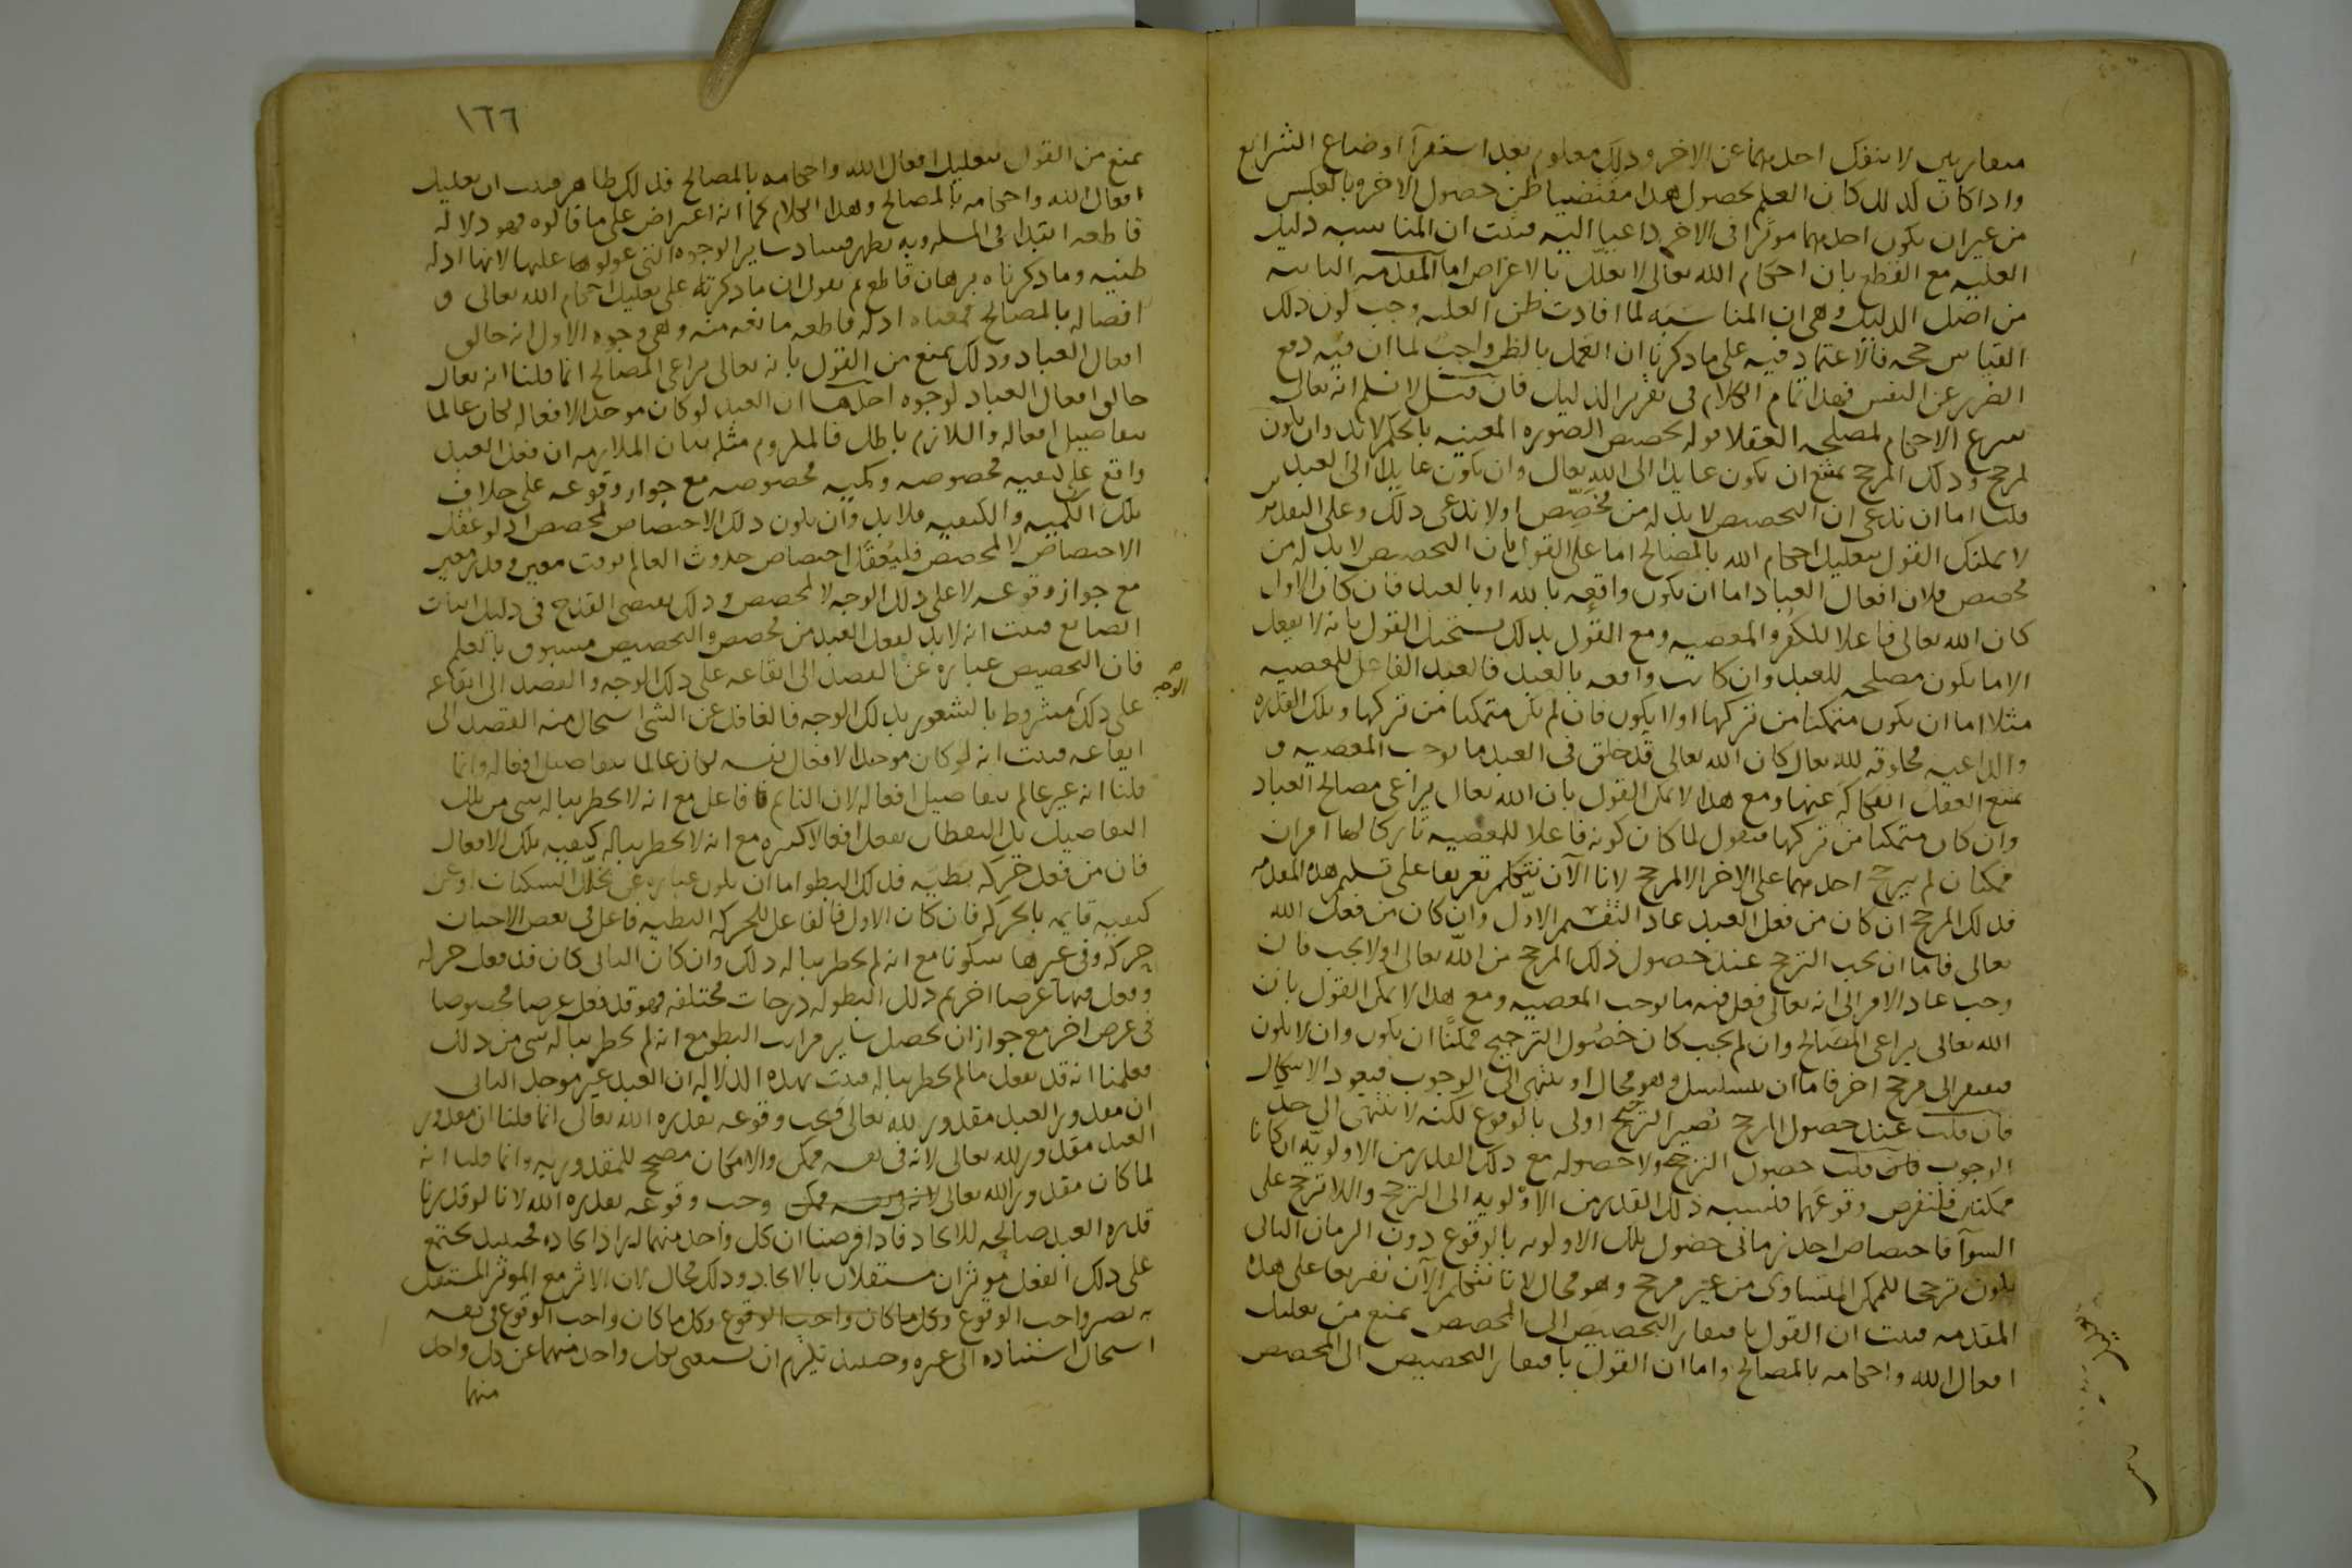 متقاربين لا ينفك احدهما عن الاخر وذلك معلوم بعد استقرآ اوضاع الشرايع
واذا كان كذلك كان العلم بحصول هذا مقتضيا ظن حصول الاخر وبالعكس
من غير ان يكون احدهما موثرا فى الاخر داعيا اليه فثبت ان المناسبه دليل
العليه مع القطع بان احكام الله تعالى لا تعلل بالاغراض اما المقدمه الثانيه
من اصل الدليل وهى ان المناسبه لما افادت ظن العليه وجب كون ذلك
القياس حجه فالاعتماد فيه على ما ذكرنا ان العمل بالظن واجب لما ان فيه دفع
الضرر عن النفس فهذا تمام الكلام فى تقرير الدليل فان قيل لا نسلم انه تعالى
شرع الاحكام لمصلحه العقلا قوله تخصيص الصوره المعينه بالحكم لا بد وان يكون
لمرجح وذلك المرجح يمتنع ان يكون عايدا الى الله تعالى وان يكون عايدا الى العبد
قلنا اما ان ندعى ان التخصيص لا بد له من مخصص او لا ندعى ذلك وعلى التقديرين
لا يمكنك القول بتعليل احكام الله بالمصالح اما على القول بان التخصيص لا بد له من
مخصص فلان افعال العباد اما ان يكون واقعه بالله او بالعبد فان كان الاول
كان الله تعالى فاعلا للكفر والمعصيه ومع القول بذلك يستحيل القول بانه لا يفعل
الا ما يكون مصلحه للعبد وان كانت واقعه بالعبد فالعبد الفاعل للمعصيه
مثلا اما ان يكون متمكنا من تركها او لا يكون فان لم يكن متمكنا من تركها وتلك القدره
والداعيه مخلوقه لله تعالى كان الله تعالى قد خلق فى العبد ما يوجب المعصيه و
يمتنع العقل انفكاكه عنها ومع هذا لا يمكن القول بان الله تعالى يراعى مصالح العباد
وان كان متمكنا من تركها فنقول لما كان كونه فاعلا للمعصيه تاركا لها امران
ممكنان لم يترجح احدهما على الاخر الا لمرجح لانا الآن نتكلم تفريعا على تسليم هذه المقدمه
فذلك المرجح ان كان من فعل العبد عاد التقسيم الاول وان كان من فعل الله
تعالى فاما ان يجب الترجح عند حصول ذلك المرجح من الله تعالى او لا يجب فان
وجب عاد الامر الى انه تعالى فعل فيه ما يوجب المعصيه ومع هذا لا يمكن القول بان
الله تعالى يراعى المصالح وان لم يجب كان حصول الترجيح ممكنا ان يكون وان لا يكون
فيفتقر الى مرجح اخر فاما ان يتسلسل وهو محال او ينتهى الى الوجوب فيعود الاشكال
فان قلت عند حصول المرجح تصير الترجح اولى بالوقوع لكنه لا ينتهى الى حد
الوجوب قلت حصول الترجح ولا حصوله مع ذلك القدر من الاولويه ان كانا
ممكنين فلنفرض وقوعهما فنسبه ذلك القدر من الاولويه الى الترجح واللاترجح على
السوآ فاختصاص احد زمانى حصول تلك الاولويه بالوقوع دون الزمان الثانى
يكون ترجحا للممكن المتساوى من غير مرجح وهو محال لانا نتكلم الآن تفريعا على هذه
المقدمه فثبت ان القول بافتقار التخصيص الى المخصص يمنع من تعليل
افعال الله واحكامه بالمصالح واما ان القول بافتقار التخصيص الى المخصص
١٦٦
يمنع من القول بتعليل افعال الله واحكامه بالمصالح فذلك ظاهر فثبت ان تعليل
افعال الله واحكامه بالمصالح وهذا الكلام كما انه اعتراض على ما قالوه فهو دلاله
قاطعه ابتدا فى المسله وبه يظهر فساد ساير الوجوه التى عولوا عليها لانها ادله
ظنيه وما ذكرناه برهان قاطع ثم نقول ان ما ذكرته على تعليل احكام الله تعالى و
افعاله بالمصالح فمعناه ادله قاطعه مانعه منه وهى وجوه الاول انه خالق
افعال العباد وذلك يمنع من القول بانه تعالى يراعى المصالح انما قلنا انه تعالى
خالق افعال العباد لوجوه احدها ان العبد لو كان موجدا لافعاله لكان عالما
بتفاصيل افعاله واللازم باطل فالملزوم مثله بيان الملازمه ان فعل العبد
واقع على كيفيه مخصوصه وكميه مخصوصه مع جواز وقوعه على خلاف
تلك الكميه والكيفيه فلا بد وان يكون ذلك الاختصاص لمخصص اذ لو عقل
الاختصاص لا لمخصص فليعقل اختصاص حدوث العالم بوقت معين وقدر معين
مع جواز وقوعه لا على ذلك الوجه لا لمخصص وذلك يقتضى القدح فى دليل اثبات
الصانع فثبت انه لا بد لفعل العبد من مخصص والتخصيص مسبوق بالعلم
فان التخصيص عباره عن القصد الى ايقاعه على ذلك الوجه والقصد الى ايقاعه
على ذلك مشروط بالشعور بذلك الوجه فالغافل عن الشى استحال منه القصد الى
الوجه
ايقاعه فثبت انه لو كان موجدا لافعال نفسه لكان عالما بتفاصيل افعاله وانما
قلنا انه غير عالم بتفاصيل افعاله لان النايم فاعل مع انه لا يخطر بباله شى من تلك
التفاصيل بل اليقظان يفعل افعالا كثيره مع انه لا يخطر بباله كيفيه تلك الافعال
فان من فعل حركه بطيه فذلك البطو اما ان يكون عباره عن تخلل السكنات او عن
كيفيه قايمه بالحركه فان كان الاول فالفاعل للحركه البطيه فاعل فى بعض الاحيان
حركه وفى غيرها سكونا مع انه لم يخطر بباله ذلك وان كان الثانى كان قد فعل حركه
وفعل فيها عرضا اخر ثم ذلك البطو له درجات مختلفه فهو قد فعل عرضا مخصوصا
فى عرض اخر مع جواز ان يحصل ساير مراتب البطو مع انه لم يخطر بباله شى من ذلك
فعلمنا انه قد يفعل ما لم يخطر بباله فثبت بهذه الدلاله ان العبد غير موجد الثانى
ان مقدور العبد مقدور لله تعالى فيجب وقوعه بقدره الله تعالى انما قلنا ان مقدور
العبد مقدور لله تعالى لانه فى نفسه ممكن والامكان مصحح للمقدوريه وانما قلنا انه
لما كان مقدورا لله تعالى لانه فى نفسه ممكن وجب وقوعه بقدره الله لانا لو قدرنا
قدره العبد صالحه للايجاد فاذا فرضنا ان كل واحد منهما اراد ايجاده فحينيذ يجتمع
على ذلك الفعل موثران مستقلان بالايجاد وذلك محال لان الاثر مع الموثر المستقل
به يصير واجب الوقوع وكل ما كان واجب الوقوع وكل ما كان واجب الوقوع فى نفسه
استحال استناده الى غيره وحينيذ يلزم ان يستغنى بكل واحد منهما عن كل واحد
منهما